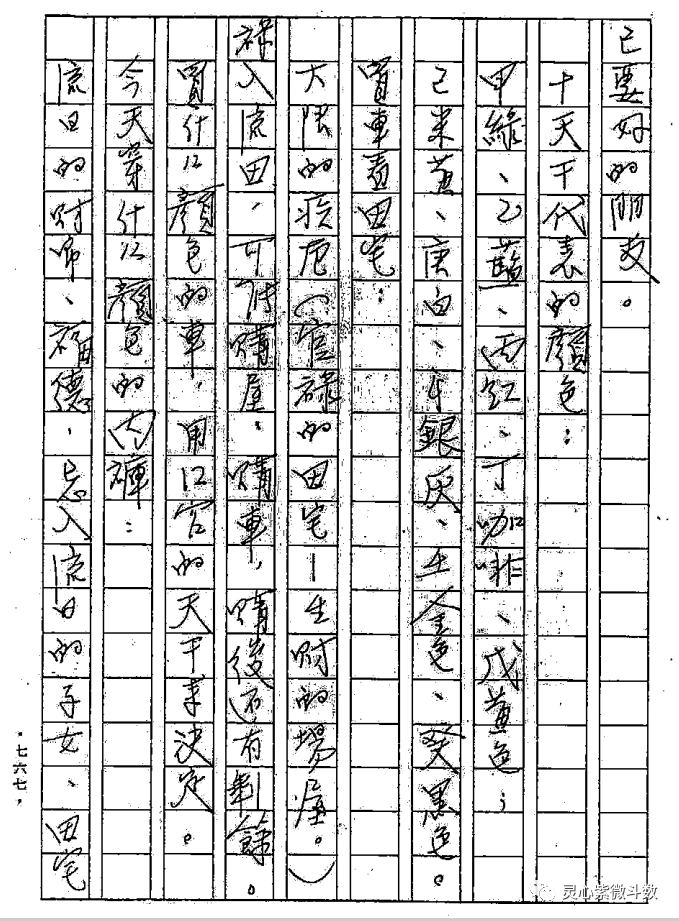 己要好的朋友。
十天干代表的顏色：
甲綠、乙藍、丙紅、丁咖啡、戊黃色；
己米黃、庚白、辛銀灰、壬金色、癸黑色。
買車看田宅：
大限的疾厄（官祿的田宅—生財的場屋。）
祿入流田，可付購屋、購車，購後還有剩餘。
買什么顏色的車，用官的天干來決定。
今天穿什么顏色的內褲：
流日的財帛、福德，忌入流日的子女、田宅
·七六七·
灵心紫微斗数